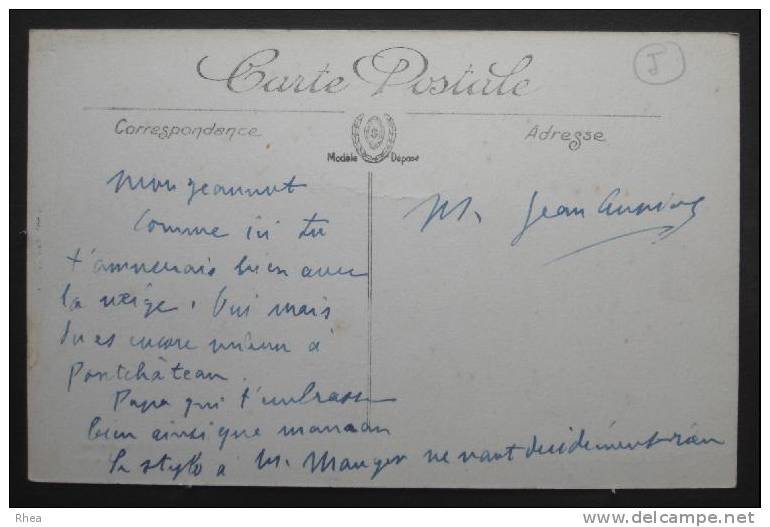 Carte Postale
J
Correspondance
Adresse
Modèle Déposé
Mon Jeannot
Comme ici tu
t'amuserais bien avec
la neige. Oui mais
tu es encore mieux à
Pontchâteau.
Papa qui t'embrasse
bien ainsi que maman
Le stylo à M. Manger ne vaut décidément rien
M. Jean
Rhea
delcampe.net